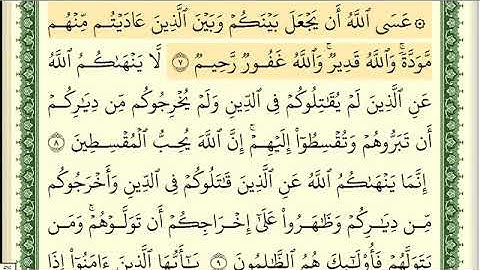 ۞ عَسَى ٱللَّهُ أَن يَجْعَلَ بَيْنَكُمْ وَبَيْنَ ٱلَّذِينَ عَادَيْتُم مِّنْهُم
مَّوَدَّةً ۚ وَٱللَّهُ قَدِيرٌ ۚ وَٱللَّهُ غَفُورٌ رَّحِيمٌ ٧ لَّا يَنْهَىٰكُمُ ٱللَّهُ
عَنِ ٱلَّذِينَ لَمْ يُقَـٰتِلُوكُمْ فِى ٱلدِّينِ وَلَمْ يُخْرِجُوكُم مِّن دِيَـٰرِكُمْ
أَن تَبَرُّوهُمْ وَتُقْسِطُوٓا۟ إِلَيْهِمْ ۚ إِنَّ ٱللَّهَ يُحِبُّ ٱلْمُقْسِطِينَ ٨
إِنَّمَا يَنْهَىٰكُمُ ٱللَّهُ عَنِ ٱلَّذِينَ قَـٰتَلُوكُمْ فِى ٱلدِّينِ وَأَخْرَجُوكُم
مِّن دِيَـٰرِكُمْ وَظَـٰهَرُوا۟ عَلَىٰٓ إِخْرَاجِكُمْ أَن تَوَلَّوْهُمْ ۚ وَمَن
يَتَوَلَّهُمْ فَأُو۟لَـٰٓئِكَ هُمُ ٱلظَّـٰلِمُونَ ٩ يَـٰٓأَيُّهَا ٱلَّذِينَ ءَامَنُوٓا۟ إِذَا